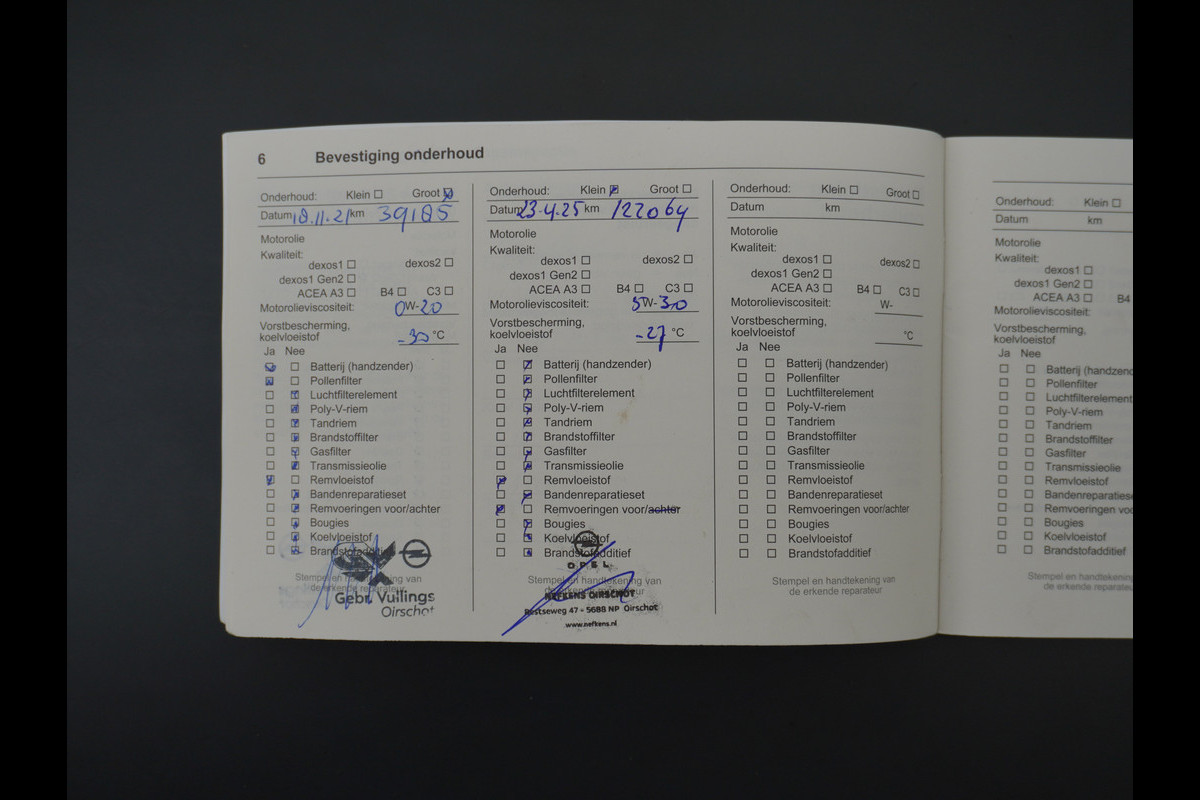 6 Bevestiging onderhoud
Onderhoud: Klein Groot
Datum 18.11.21 km 39185
Motorolie
Kwaliteit:
dexos1 dexos2
dexos1 Gen2
ACEA A3 B4 C3
Motorolieviscositeit: 0W-20
Vorstbescherming,
koelvloeistof -30 °C
Ja Nee
Batterij (handzender)
Pollenfilter
Luchtfilterelement
Poly-V-riem
Tandriem
Brandstoffilter
Gasfilter
Transmissieolie
Remvloeistof
Bandenreparatieset
Remvoeringen voor/achter
Bougies
Koelvloeistof
Brandstofadditief
Stempel en handtekening van
de erkende reparateur
Gebr. Vullings
Oirschot
Onderhoud: Klein Groot
Datum 23-4-25 km 122064
Motorolie
Kwaliteit:
dexos1 dexos2
dexos1 Gen2
ACEA A3 B4 C3
Motorolieviscositeit: 5W-30
Vorstbescherming,
koelvloeistof -27 °C
Ja Nee
Batterij (handzender)
Pollenfilter
Luchtfilterelement
Poly-V-riem
Tandriem
Brandstoffilter
Gasfilter
Transmissieolie
Remvloeistof
Bandenreparatieset
Remvoeringen voor/achter
Bougies
Koelvloeistof
Brandstofadditief
OPEL
Stempel en handtekening van
de erkende reparateur
NEFKENS OIRSCHOT
Bestseweg 47 - 5688 NP Oirschot
www.nefkens.nl
Onderhoud: Klein Groot
Datum km
Motorolie
Kwaliteit:
dexos1 dexos2
dexos1 Gen2
ACEA A3 B4 C3
Motorolieviscositeit: W-
Vorstbescherming,
koelvloeistof °C
Ja Nee
Batterij (handzender)
Pollenfilter
Luchtfilterelement
Poly-V-riem
Tandriem
Brandstoffilter
Gasfilter
Transmissieolie
Remvloeistof
Bandenreparatieset
Remvoeringen voor/achter
Bougies
Koelvloeistof
Brandstofadditief
Stempel en handtekening van
de erkende reparateur
Onderhoud: Klein
Datum km
Motorolie
Kwaliteit:
dexos1
dexos1 Gen2
ACEA A3 B4
Motorolieviscositeit:
Vorstbescherming,
koelvloeistof
Ja Nee
Batterij (handzend
Pollenfilter
Luchtfilterelement
Poly-V-riem
Tandriem
Brandstoffilter
Gasfilter
Transmissieolie
Remvloeistof
Bandenreparaties
Remvoeringen voo
Bougies
Koelvloeistof
Brandstofadditief
Stempel en handtekening
de erkende repara